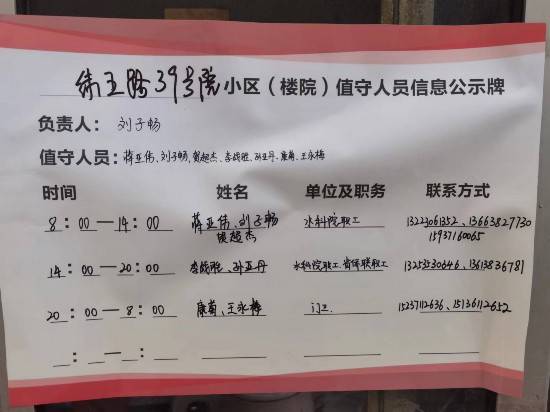 纬五路39号院小区（楼院）值守人员信息公示牌
负责人：刘子畅
值守人员：蒋亚伟、刘子畅、贺超杰、李战胜、孙亚丹、康菊、王永梅
时间 姓名 单位及职务 联系方式
8：00—14：00 蒋亚伟、刘子畅 水科院职工 13223061352、13663827730
超杰 15937160065
14：00—20：00 李战胜、孙亚丹 水科院职工、省侨联职工 13253530646、13613836781
20：00—8：00 康菊、王永梅 门卫 15237112636、15136112652
：—：